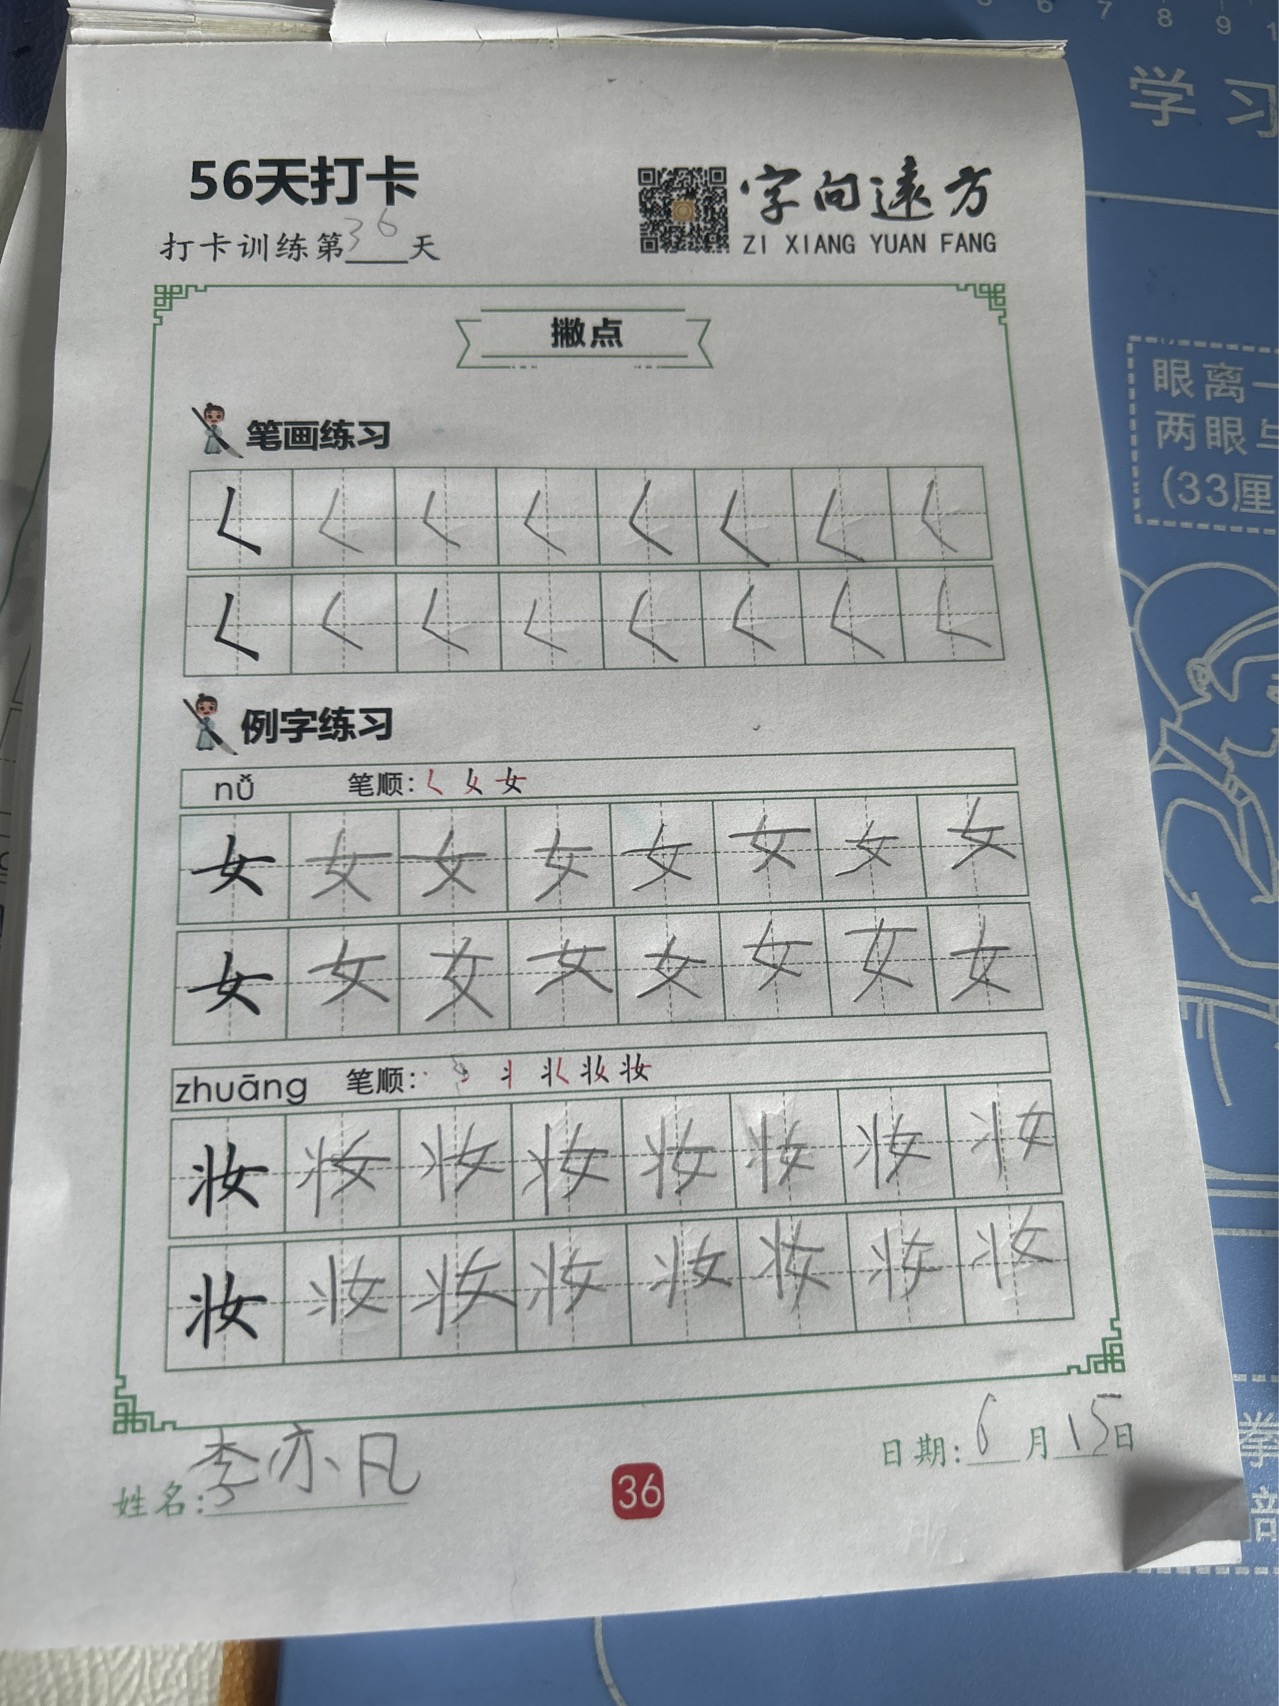 56天打卡
打卡训练第36天
字向遠方
ZI XIANG YUAN FANG
撇点
笔画练习
例字练习
nǚ 笔顺: 女
女 女 女 女 女 女 女 女
女 女 女 女 女 女 女 女
zhuāng 笔顺: 妆
妆 妆 妆 妆 妆 妆 妆 妆
妆 妆 妆 妆 妆 妆 妆 妆
姓名: 李亦凡
36
日期: 6月15日
6 7 8 9
学习
眼离一
两眼与
(33厘